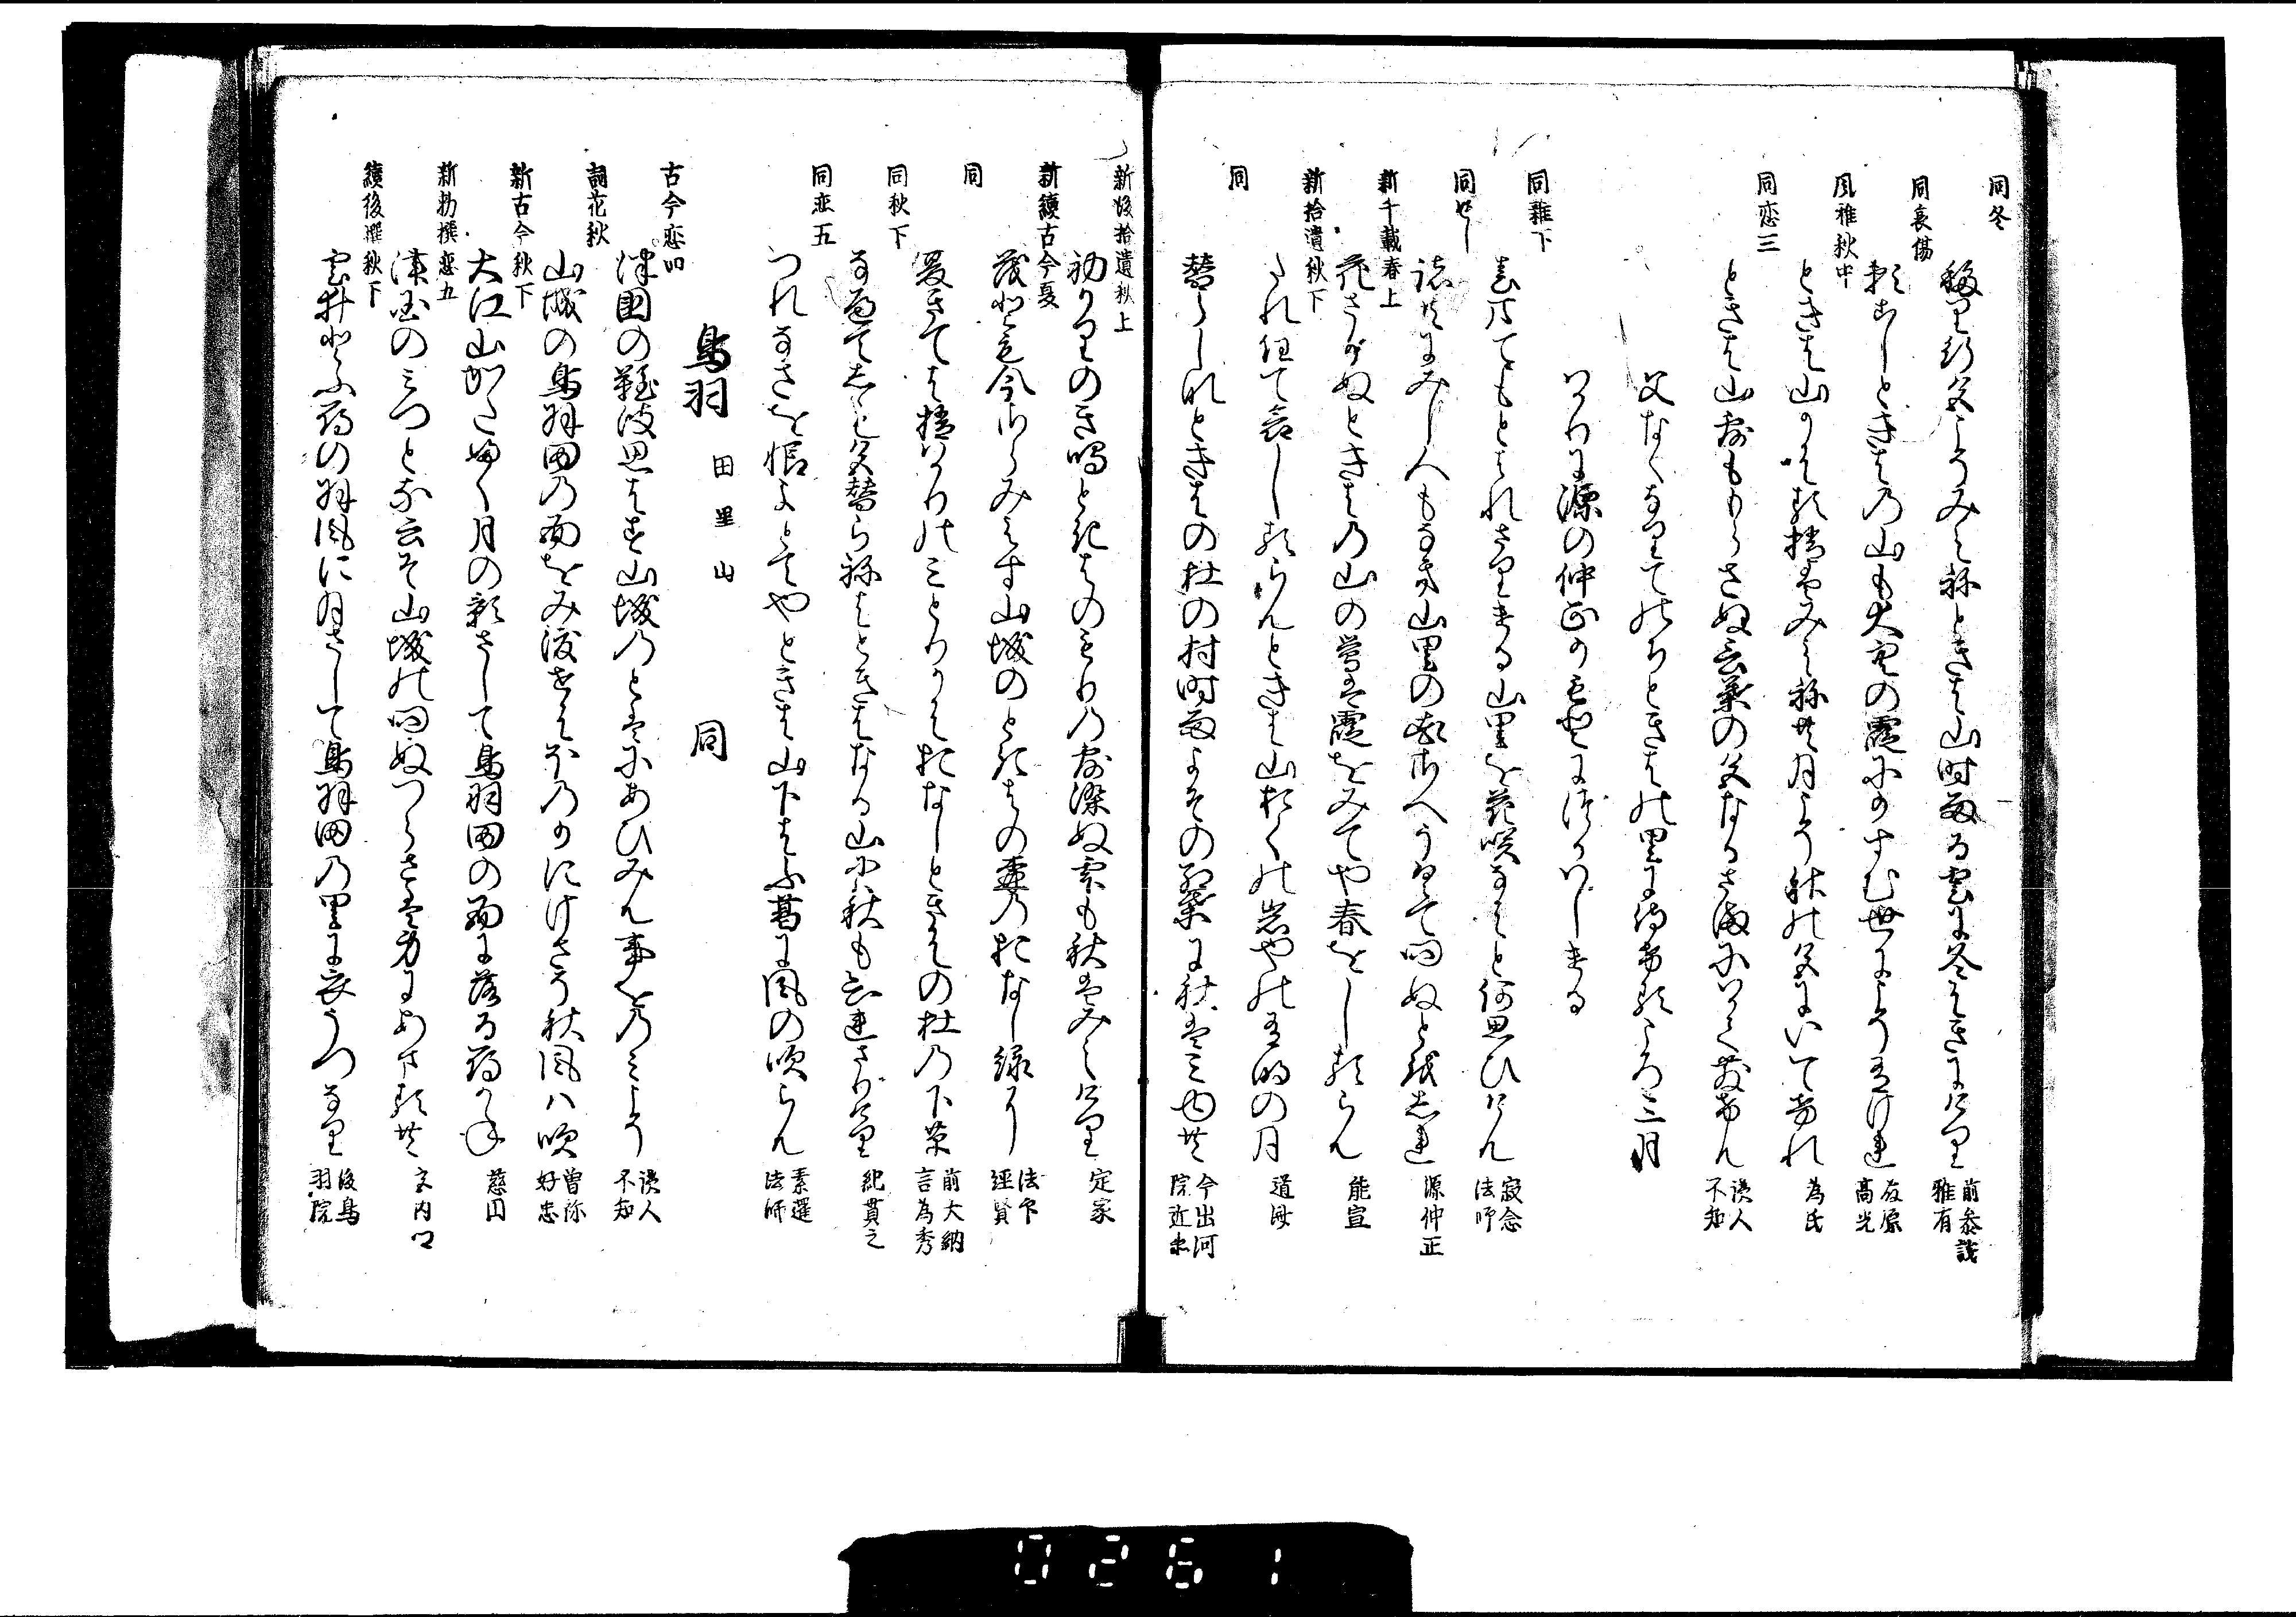 同冬
移り行色こそみえねときは山時雨る雲に冬はきにけり
前参議雅有
同哀傷
ときはの山も大空の霞にかすむ世に
高光
風雅秋中
ときは山かはる梢はみえね共月こそ秋の色にいてけれ
為氏
同恋三
ときは山露ももらさぬ言葉の色なるさまにいかて
読人不知
父なくなりて後ときはの里に侍けるころ三月
はかりに源の仲正のもとにつかはしける
同雑下
春来てもとはれさりける山里を花咲なはと何思ひけん
寂念法師
同かへし
諸共にみし人もなき山里の花さへうくて問ぬとをしれ
源仲正
新千載春上
花さかぬときはの山の鶯は霞をみてや春をしるらん
能宣
新拾遺秋下
たれ住て哀しるらんときは山おくの岩やの有明の月
道因
同
替らしなときはの杜の村時雨よその紅葉に秋は
今出河院近衛
新後拾遺秋上
初かりのき鳴ときはのもりの露染ぬ雫も秋はみえけり
定家
新続古今夏
茂れとも今はみえす山城のときはの杜のおなし緑に
法印経賢
同
夏きては梢はかりのみとりかはおなしときはの杜の下草
前大納言為秀
同秋下
なへてしも色替らねはときはなる山に秋も知れさりけり
紀貫之
同恋五
つれなさを恨よとてやときは山下はふ葛に風の吹らん
素暹法師
鳥羽 田里山 同
古今恋四
津国の難波思はす山城のとはにあひみん事をのみこそ
読人不知
詞花秋
山城の鳥羽田の面をみ渡せはほのかにけさそ秋風ハ吹
曽祢好忠
新古今秋下
大江山かたふく月の影さして鳥羽田の面に落る鴈かね
慈円
新勅撰恋五
津国のみつとな云そ山城の問ぬつらさは身にあまる共
宮内卿
続後撰秋下
雲井とふ鴈の羽風に月さして鳥羽田の里に衣うつなり
後鳥羽院
0261